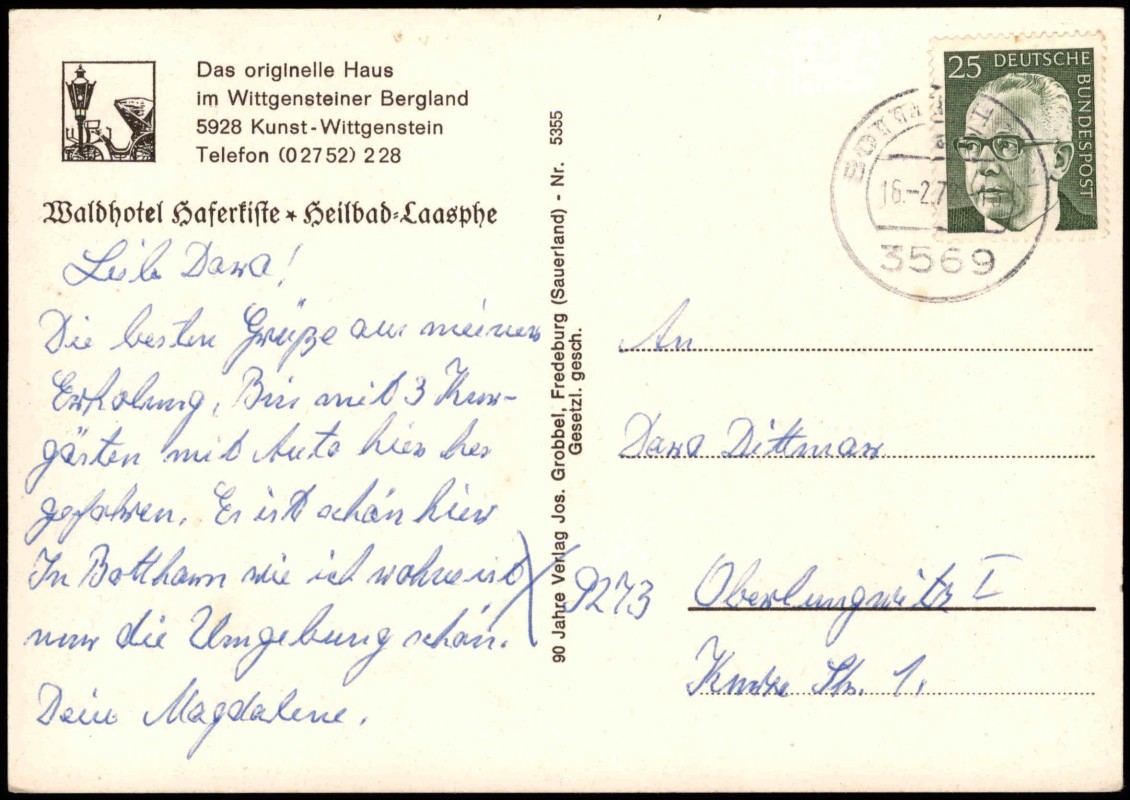 Das originelle Haus
im Wittgensteiner Bergland
5928 Kunst-Wittgenstein
Telefon (02752) 228
Waldhotel Haferkiste ★ Heilbad-Laasphe
Dora!
Die besten Grüße aus meiner
Erholung, Bin mit 3 Kur-
gästen mit Auto hier her
gefahren. Es ist schön hier
In wie ich wohne ist
nur die Umgebung schön.
Dein Magdalene.
90 Jahre Verlag Jos. Grobbel, Fredeburg (Sauerland) - Nr. 5355
Gesetzl. gesch.
25 DEUTSCHE
BUNDESPOST
16.-2.7
3569
An
Dora Dittmar
9273 Oberlungwitz I
Str. 1.